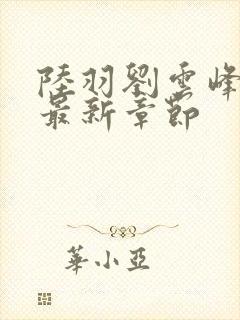 陸羽劉雲峰
最新章節
華小亞